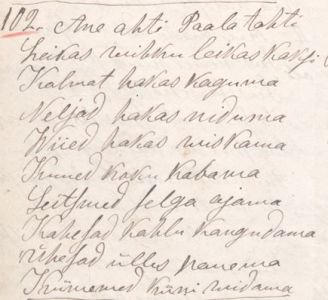 102. Ane ahti Paala tahti
Leikas wihku leikas kaksi
Kolmat hakas koguma
Neljad hakas niduma
Wiied hakas wiskama
Kuued koku kabama
Seitsmed selga ajama
Kahesad kahlu kangudama
ühesad ülles panema
Kümnemed käsi widama